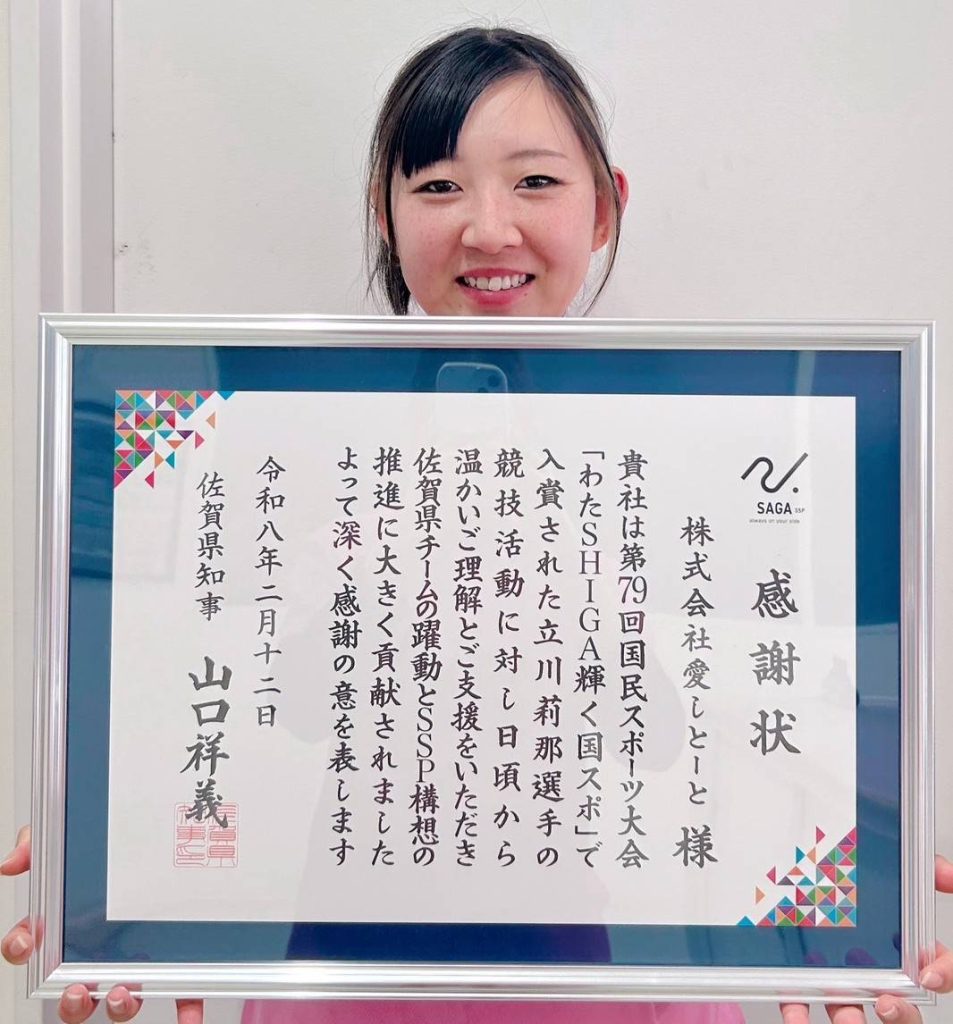 SAGA SSP
always on your side
感謝状
株式会社愛しとーと 様
貴社は第79回国民スポーツ大会
「わたSHIGA輝く国スポ」で
入賞された立川莉那選手の
競技活動に対し日頃から
温かいご理解とご支援をいただき
佐賀県チームの躍動とSSP構想の
推進に大きく貢献されました
よって深く感謝の意を表します
令和八年二月十二日
佐賀県知事 山口祥義